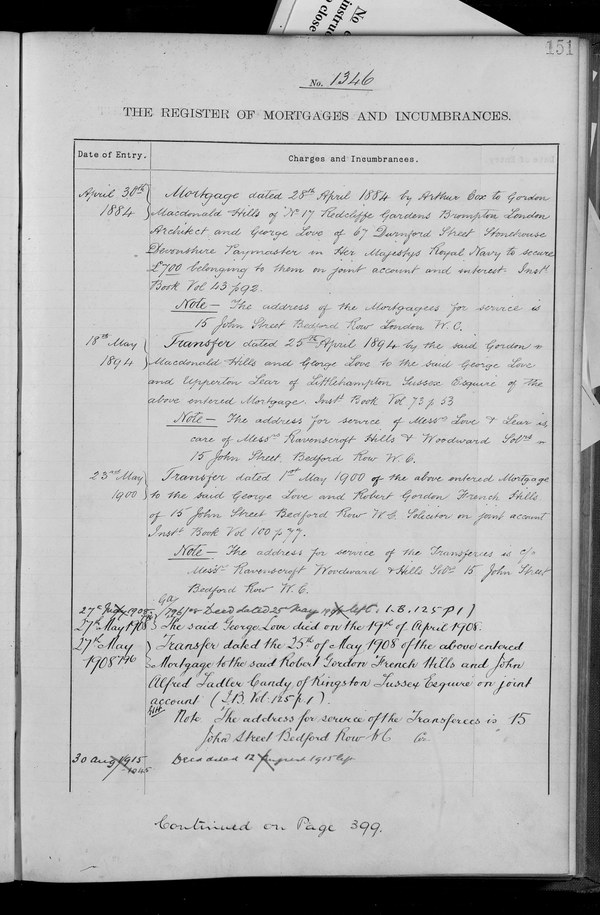 No
instruc
close
151
No. 1346
THE REGISTER OF MORTGAGES AND INCUMBRANCES.
Date of Entry.
Charges and Incumbrances.
April 30th
1884
Mortgage dated 28th April 1884 by Arthur Cox to Gordon
Macdonald Hills of No 17 Redcliffe Gardens Brompton London
Architect and George Love of 67 Durnford Street Stonehouse
Devonshire Paymaster in Her Majestys Royal Navy to secure
£700 belonging to them on joint account and interest. Inst.
Book Vol 43 p 92.
Note – The address of the Mortgagees for service is
15 John Street Bedford Row London W.C.
18th May
1894
Transfer dated 25th April 1894 by the said Gordon
Macdonald Hills and George Love to the said George Love
and Upperton Lear of Littlehampton Sussex Esquire of the
above entered Mortgage. Inst Book Vol 73 p 53
Note – The address for service of Messrs Love & Lear is
care of Messrs Ravenscroft Hills & Woodward Solrs
15 John Street. Bedford Row W.C.
23rd May
1900
Transfer dated 1st May 1900 of the above entered Mortgage
to the said George Love and Robert Gordon French Hills
of 15 John Street Bedford Row W.C. Solicitor on joint account
Inst Book Vol 100 p 77.
Note – The address for service of the Transferees is c/o
Messrs Ravenscroft Woodward & Hills Solrs 15 John Street
Bedford Row W.C.
27 1908
Deed dated 25 May left I.B. 125 P 1)
27th May 1908
The said George Love died on the 19th of April 1908.
27th May
1908
Transfer dated the 25th of May 1908 of the above entered
Mortgage to the said Robert Gordon French Hills and John
Alfred Sadler Candy of Kingston Sussex Esquire on joint
account (I.B. Vol. 125 p 1).
Note The address for service of the Transferees is 15
John Street Bedford Row W C
30 Aug 1915
Deed dated 12 August 1915 left
Continued on Page 399.